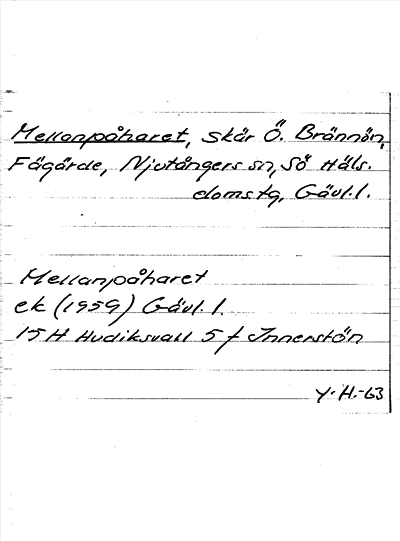 Mellanpåharet, skär Ö. Brännön,
Fägärde, Njutångers sn, Sö Häls.
domstg, Gävl. l.
Mellanpåharet
ek (1959) Gävl. l.
15 H Hudiksvall 5 f Innerstön
Y. H.-63